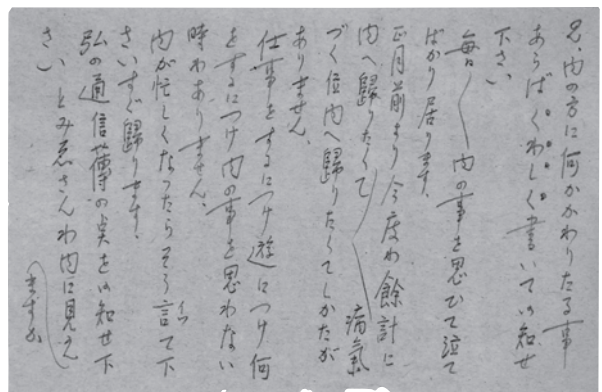 兄、内の方に何かかわりたる事
あらばくわしく書いてお知せ
下さい
毎日〱内の事を思ひて泣て
ばかり居ります、
正月前より今度わ餘計に
内へ歸りたくて〱病氣
づく位内へ歸りたくてしかたが
ありません、
仕事をするにつけ遊につけ何
をするにつけ内の事を思わない
時わありません、
内が忙しくなったらそう言って下
さいすぐ歸ります、
弘の通信簿の点をお知せ下
さい、とみゑさんわ内に見え
ますか